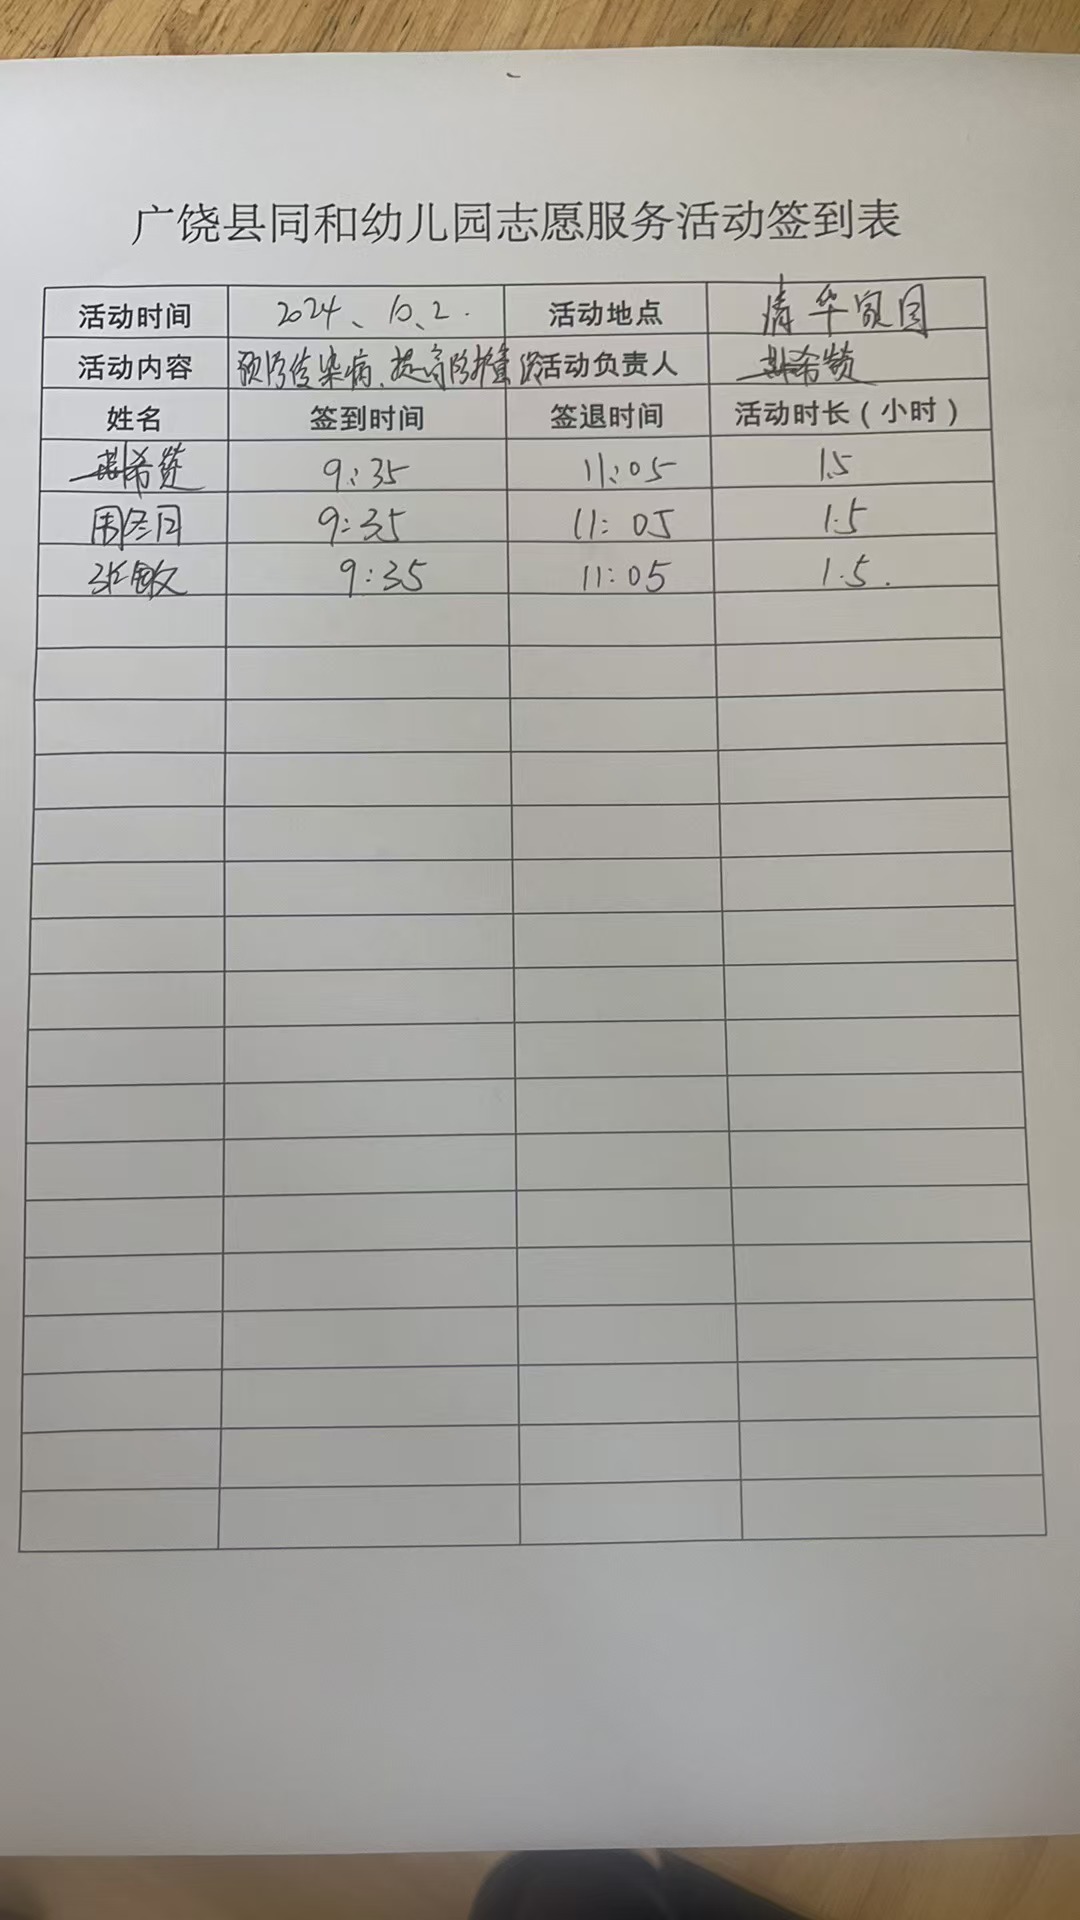 广饶县同和幼儿园志愿服务活动签到表
活动时间 2024、10、2. 活动地点 清华家园
活动内容 预防传染病、提高防护意识 活动负责人 希
姓名 签到时间 签退时间 活动时长（小时）
希 9:35 11:05 1.5
周冬日 9:35 11:05 1.5
张敏 9:35 11:05 1.5.